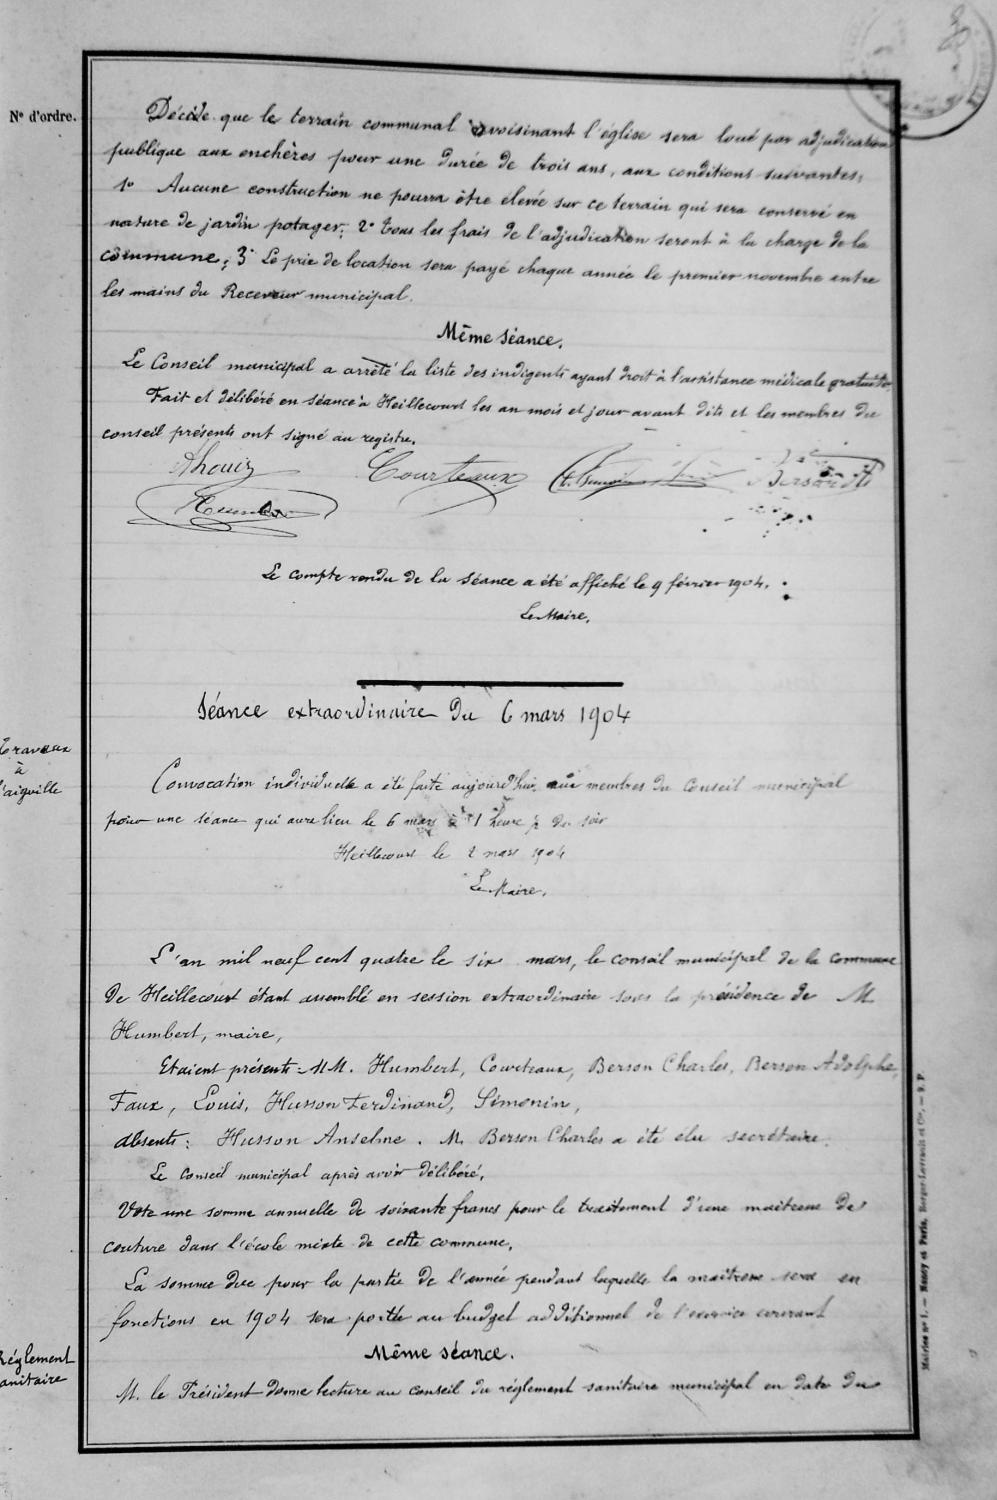 N° d'ordre.
Décide que le terrain communal avoisinant l'église sera loué par adjudication
publique aux enchères pour une durée de trois ans, aux conditions suivantes,
1° Aucune construction ne pourra être élevée sur ce terrain qui sera conservé en
nature de jardin potager; 2° tous les frais de l'adjudication seront à la charge de la
commune; 3° Le prix de location sera payé chaque année le premier novembre entre
les mains du Receveur municipal.
Même séance.
Le Conseil municipal a arrêté la liste des indigents ayant droit à l'assistance médicale gratuite.
Fait et délibéré en séance à Heillecourt les an mois et jour avant dits et les membres du
conseil présents ont signé au registre.
Courteaux
Le compte rendu de la séance a été affiché le 9 février 1904.
Le Maire,
Séance extraordinaire du 6 mars 1904
Travaux
à
l'aiguille
Convocation individuelle a été faite aujourd'hui aux membres du Conseil municipal
pour une séance qui aura lieu le 6 mars à 1 heure ½ du soir
Heillecourt le 2 mars 1904
Le Maire,
L'an mil neuf cent quatre le six mars, le conseil municipal de la commune
de Heillecourt étant assemblé en session extraordinaire sous la présidence de M
Humbert, maire,
Etaient présents - MM. Humbert, Courteaux, Berson Charles, Berson Adolphe,
Faux, Louis, Husson Ferdinand, Simonin,
absents: Husson Anselme. M. Berson Charles a été élu secrétaire.
Le Conseil municipal après avoir délibéré,
Vote une somme annuelle de soixante francs pour le traitement d'une maitresse de
couture dans l'école mixte de cette commune,
La somme due pour la partie de l'année pendant laquelle la maîtresse sera en
fonctions en 1904 sera portée au budget additionnel de l'exercice courant
Même séance.
Réglement
sanitaire
M. le Président donne lecture au conseil du réglement sanitaire municipal en date du
Mairies n° 1. — Nancy et Paris, Berger-Levrault et Cie. — S. P.